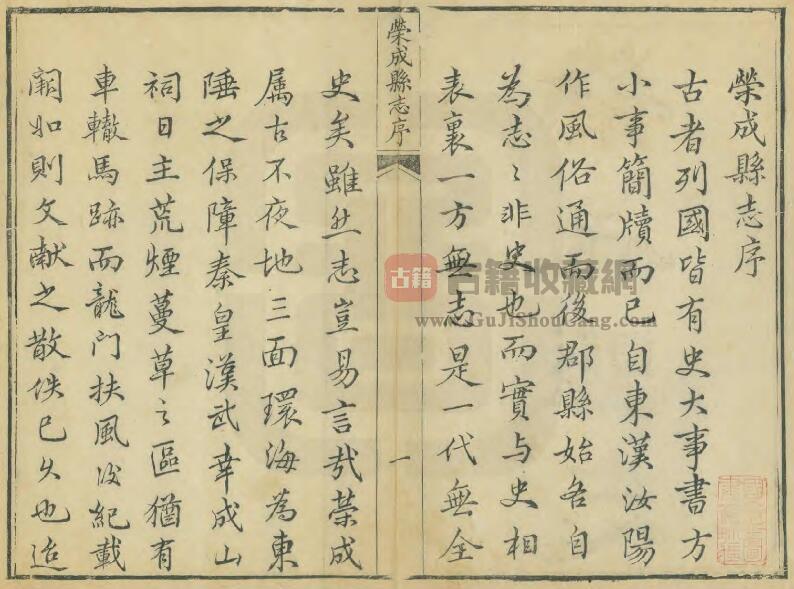 榮成縣志序
古者列國皆有史大事書方
小事簡牘而已自東漢汝陽
作風俗通而後郡縣始各自
為志〻非史也而實与史相
表裏一方無志是一代無全
榮成縣志序
一
史矣雖然志豈易言哉榮成
属古不夜地三面環海為東
陲之保障秦皇漢武幸成山
祠日主荒煙蔓草之區猶有
車轍馬跡而龍門扶風後紀載
闕如則文献之散佚已久也迨
古籍
古籍收藏網
www.GuJiShouCang.com